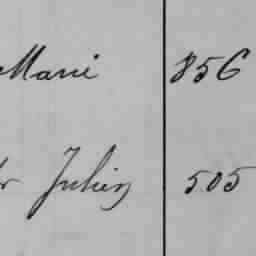 Marie 856
Julien 505